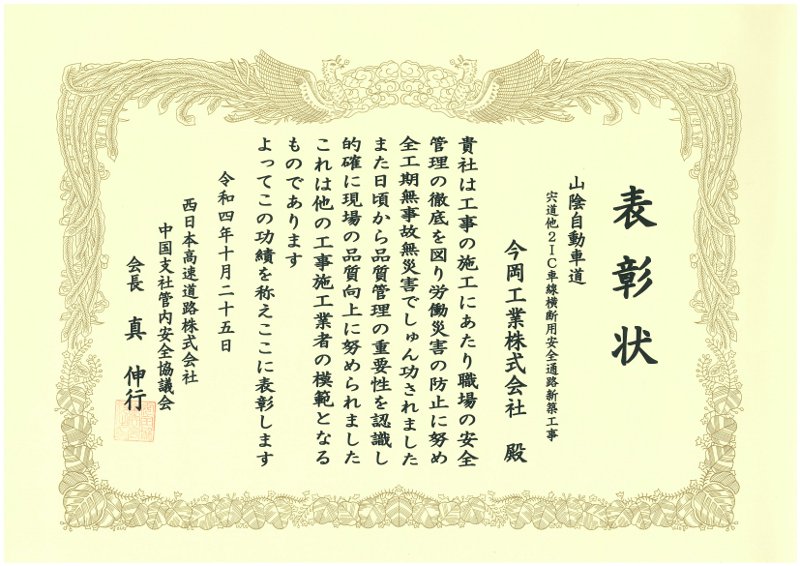 表彰状
山陰自動車道
宍道他2IC車線横断用安全通路新築工事
今岡工業株式会社 殿
貴社は工事の施工にあたり職場の安全
管理の徹底を図り労働災害の防止に努め
全工期無事故無災害でしゅん功されました
また日頃から品質管理の重要性を認識し
的確に現場の品質向上に努められました
これは他の工事施工業者の模範となる
ものであります
よってこの功績を称えここに表彰します
令和四年十月二十五日
西日本高速道路株式会社
中国支社管内安全協議会
会長 真 伸行